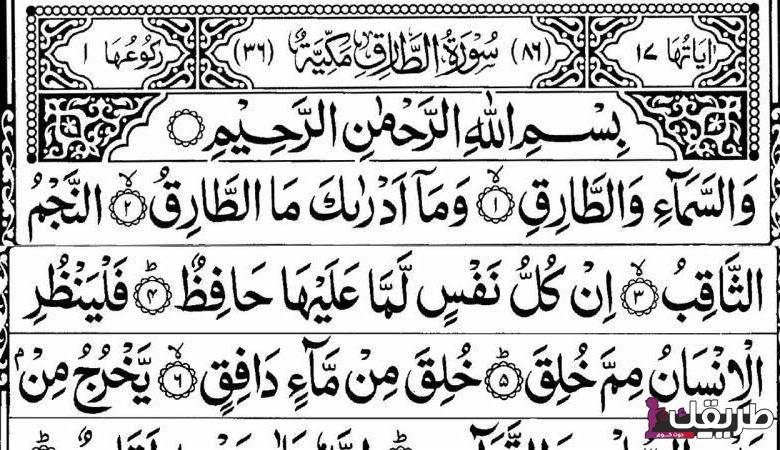 اٰیَاتُهَا ١٧ (٨٦) سُوْرَةُ الطَّارِقِ مَكِّيَّةٌ (٣٦) رُكُوْعُهَا ١
بِسْمِ اللّٰهِ الرَّحْمٰنِ الرَّحِيْمِ
وَالسَّمَآءِ وَالطَّارِقِ ١ وَمَآ اَدْرٰىكَ مَا الطَّارِقُ ٢ النَّجْمُ
الثَّاقِبُ ٣ اِنْ كُلُّ نَفْسٍ لَّمَّا عَلَيْهَا حَافِظٌ ٤ فَلْيَنْظُرِ
الْاِنْسَانُ مِمَّ خُلِقَ ٥ خُلِقَ مِنْ مَّآءٍ دَافِقٍ ٦ يَّخْرُجُ مِنْ
طريقك
دوت كوم